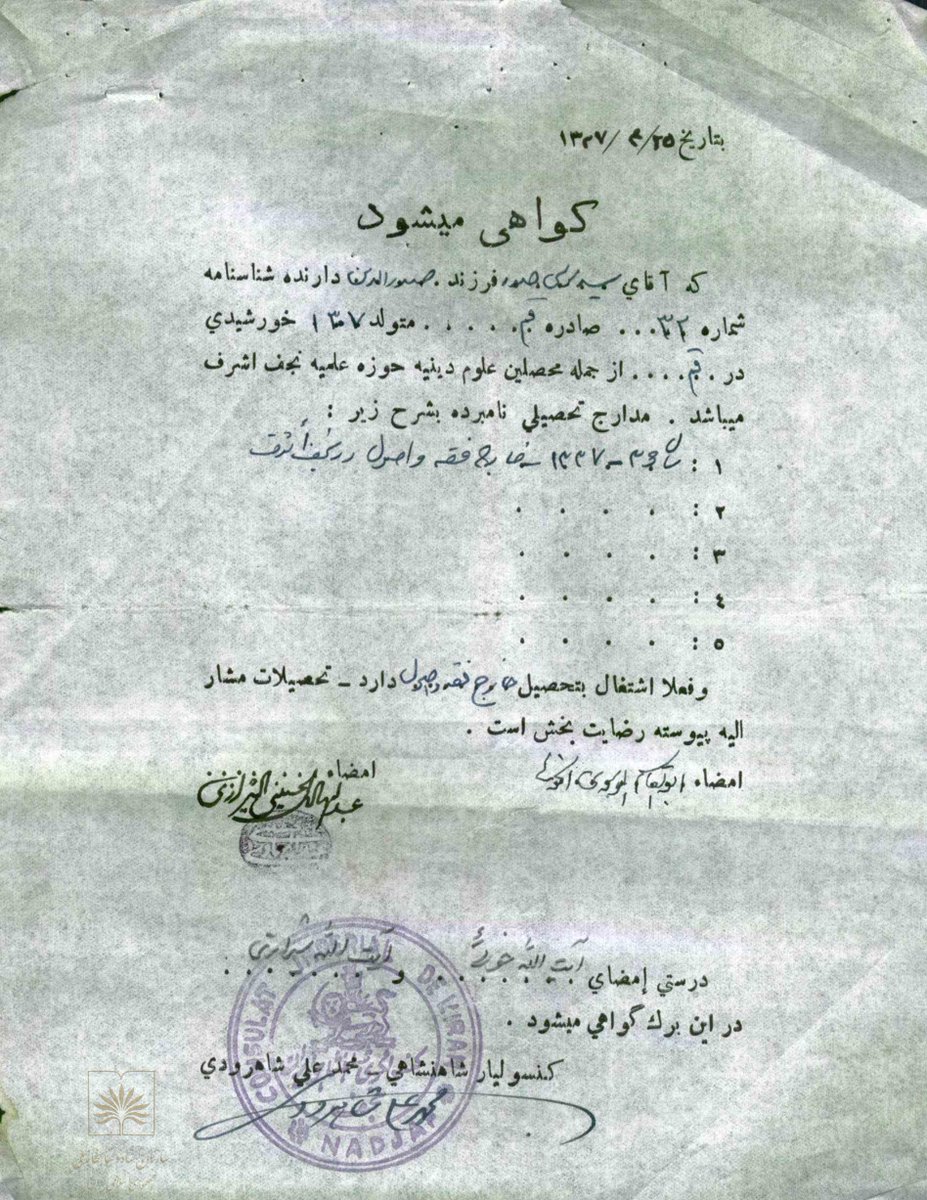 بتاريخ ۲۵/ ۴ /۱۳۳۷
كواهى ميشود
كه آقاي سيد موسى صدر فرزند . صدرالدين دارنده شناسنامه
شماره ۳۲ . . . صادره قم . . . . . متولد ۱۳۰۷ خورشيدي
در . قم . . . . از جمله محصلين علوم دينيه حوزه علميه نجف اشرف
ميباشد . مدارج تحصيلي نامبرده بشرح زير :
۱ : سال ۳۴ - ۱۳۳۷ - خارج فقه و اصول در نجف اشرف
۲ : . . . .
۳ : . . . .
٤ : . . . .
٥ : . . . .
و فعلا اشتغال بتحصيل خارج فقه و اصول دارد ـ تحصيلات مشار
اليه پيوسته رضايت بخش است .
امضاء ابوالقاسم الموسوى الخوئى
امضاء
عبدالهادى الحسينى الشيرازى
درستي إمضاي آيت الله خوئى . . . . و آيت الله شيرازى . . . .
در اين برك گواهي ميشود .
كنسوليار شاهنشاهي ـ محمد علي شاهرودي
محمد على شاهرودى
CONSULAT DE L'IRAN
NADJAF